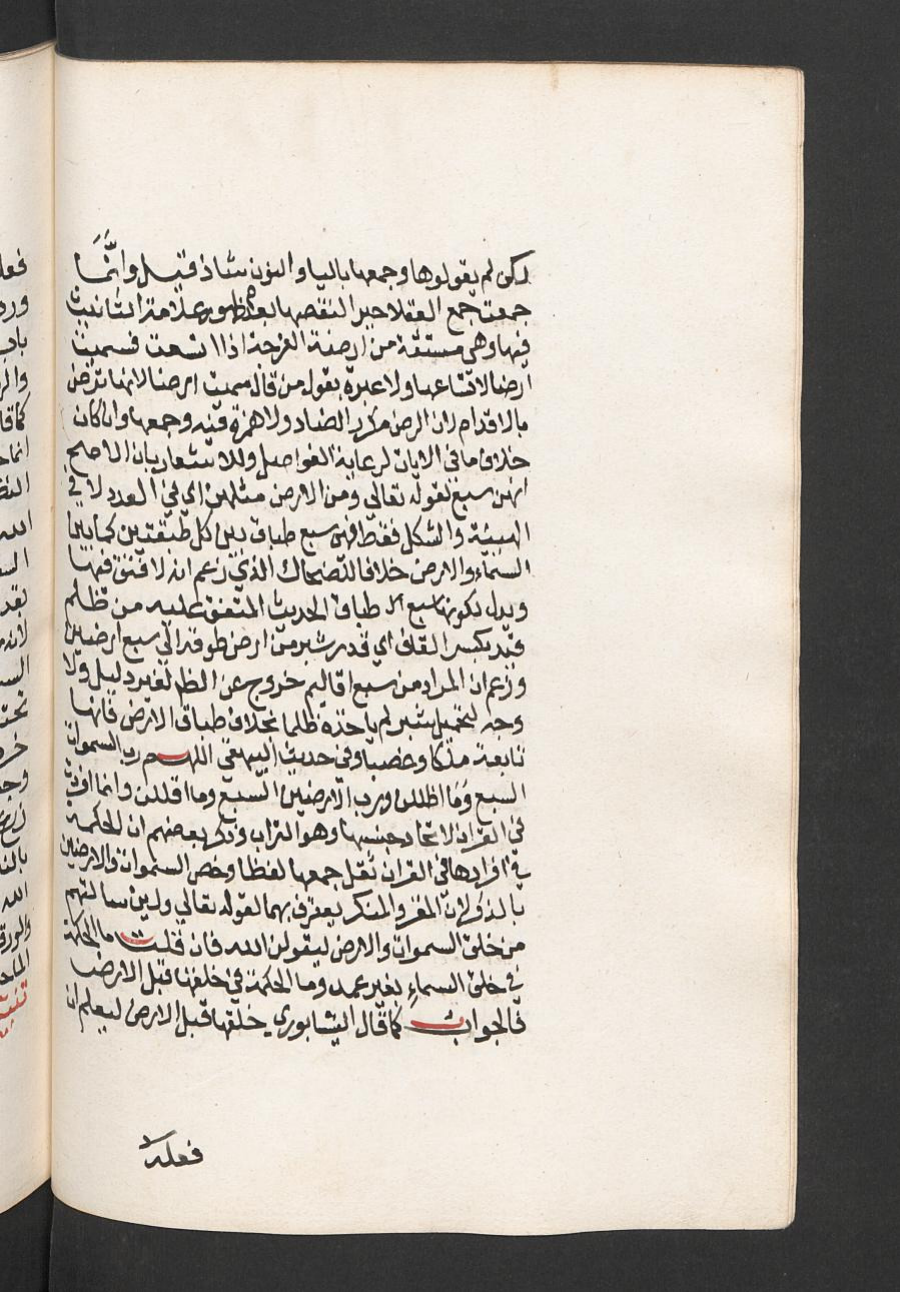 لكن لم يقولوها وجمعها باليا والنون شاذ قيل وانَّمَا
جمعت جمع العقلا جبر النقصها بعدم ظهور علامة التانيث
فيها وهي مشتقة من ارضت القرحة اذا اتسعت فسميت
ارضا لاتساعها ولا عبرة بقول من قال سميت ارضا لانها ترض
بالاقدام لان الرض مكرر الضاد ولا همزة فيه وجمعها وان كان
خلاف ما في الايات لرعاية الفواصل وللاشعار بان الاصح
انهن سبع لقوله تعالي ومن الارض مثلهن اي في العدد لا في
الهيئة والشكل فقط فهن سبع طباق بين كل طبقتين كما بين
السماء والارض خلافا للضحاك الذي زعم انه لا فتق فيها
ويدل لكونها سبع طباق الحديث المتفق عليه من ظلم
قيد بكسر القاف اي قدر شبر من ارض طوقه الي سبع ارضين
وزعم ان المراد من سبع اقاليم خروج عن الظا لغير دليل ولا
وجه لتحميل شبر لم ياخذه ظلما بخلاف طباق الارض فانها
تابعة ملكا وغصبا وفي حديث البيهقي اللهم رب السموات
السبع وما اظللن ورب الارضين السبع وما اقللن وانما افردت
في القران لاتحاد جنسها وهو التراب وذكر بعضهم ان الحكمة
في افرادها في القران ثقل جمعها لفظا وخص السموات والارضين
بالذكر لان المقر والمنكر يعترف بهما لقوله تعالي ولين سالتهم
من خلق السموات والارض ليقولن الله فان قلت ما الحكمة
في خلق السماء بغير عمد وما الحكمة في خلقها قبل الارض
فالجواب كما قال النيشابوري خلقها قبل الارض ليعلم ان
فعله